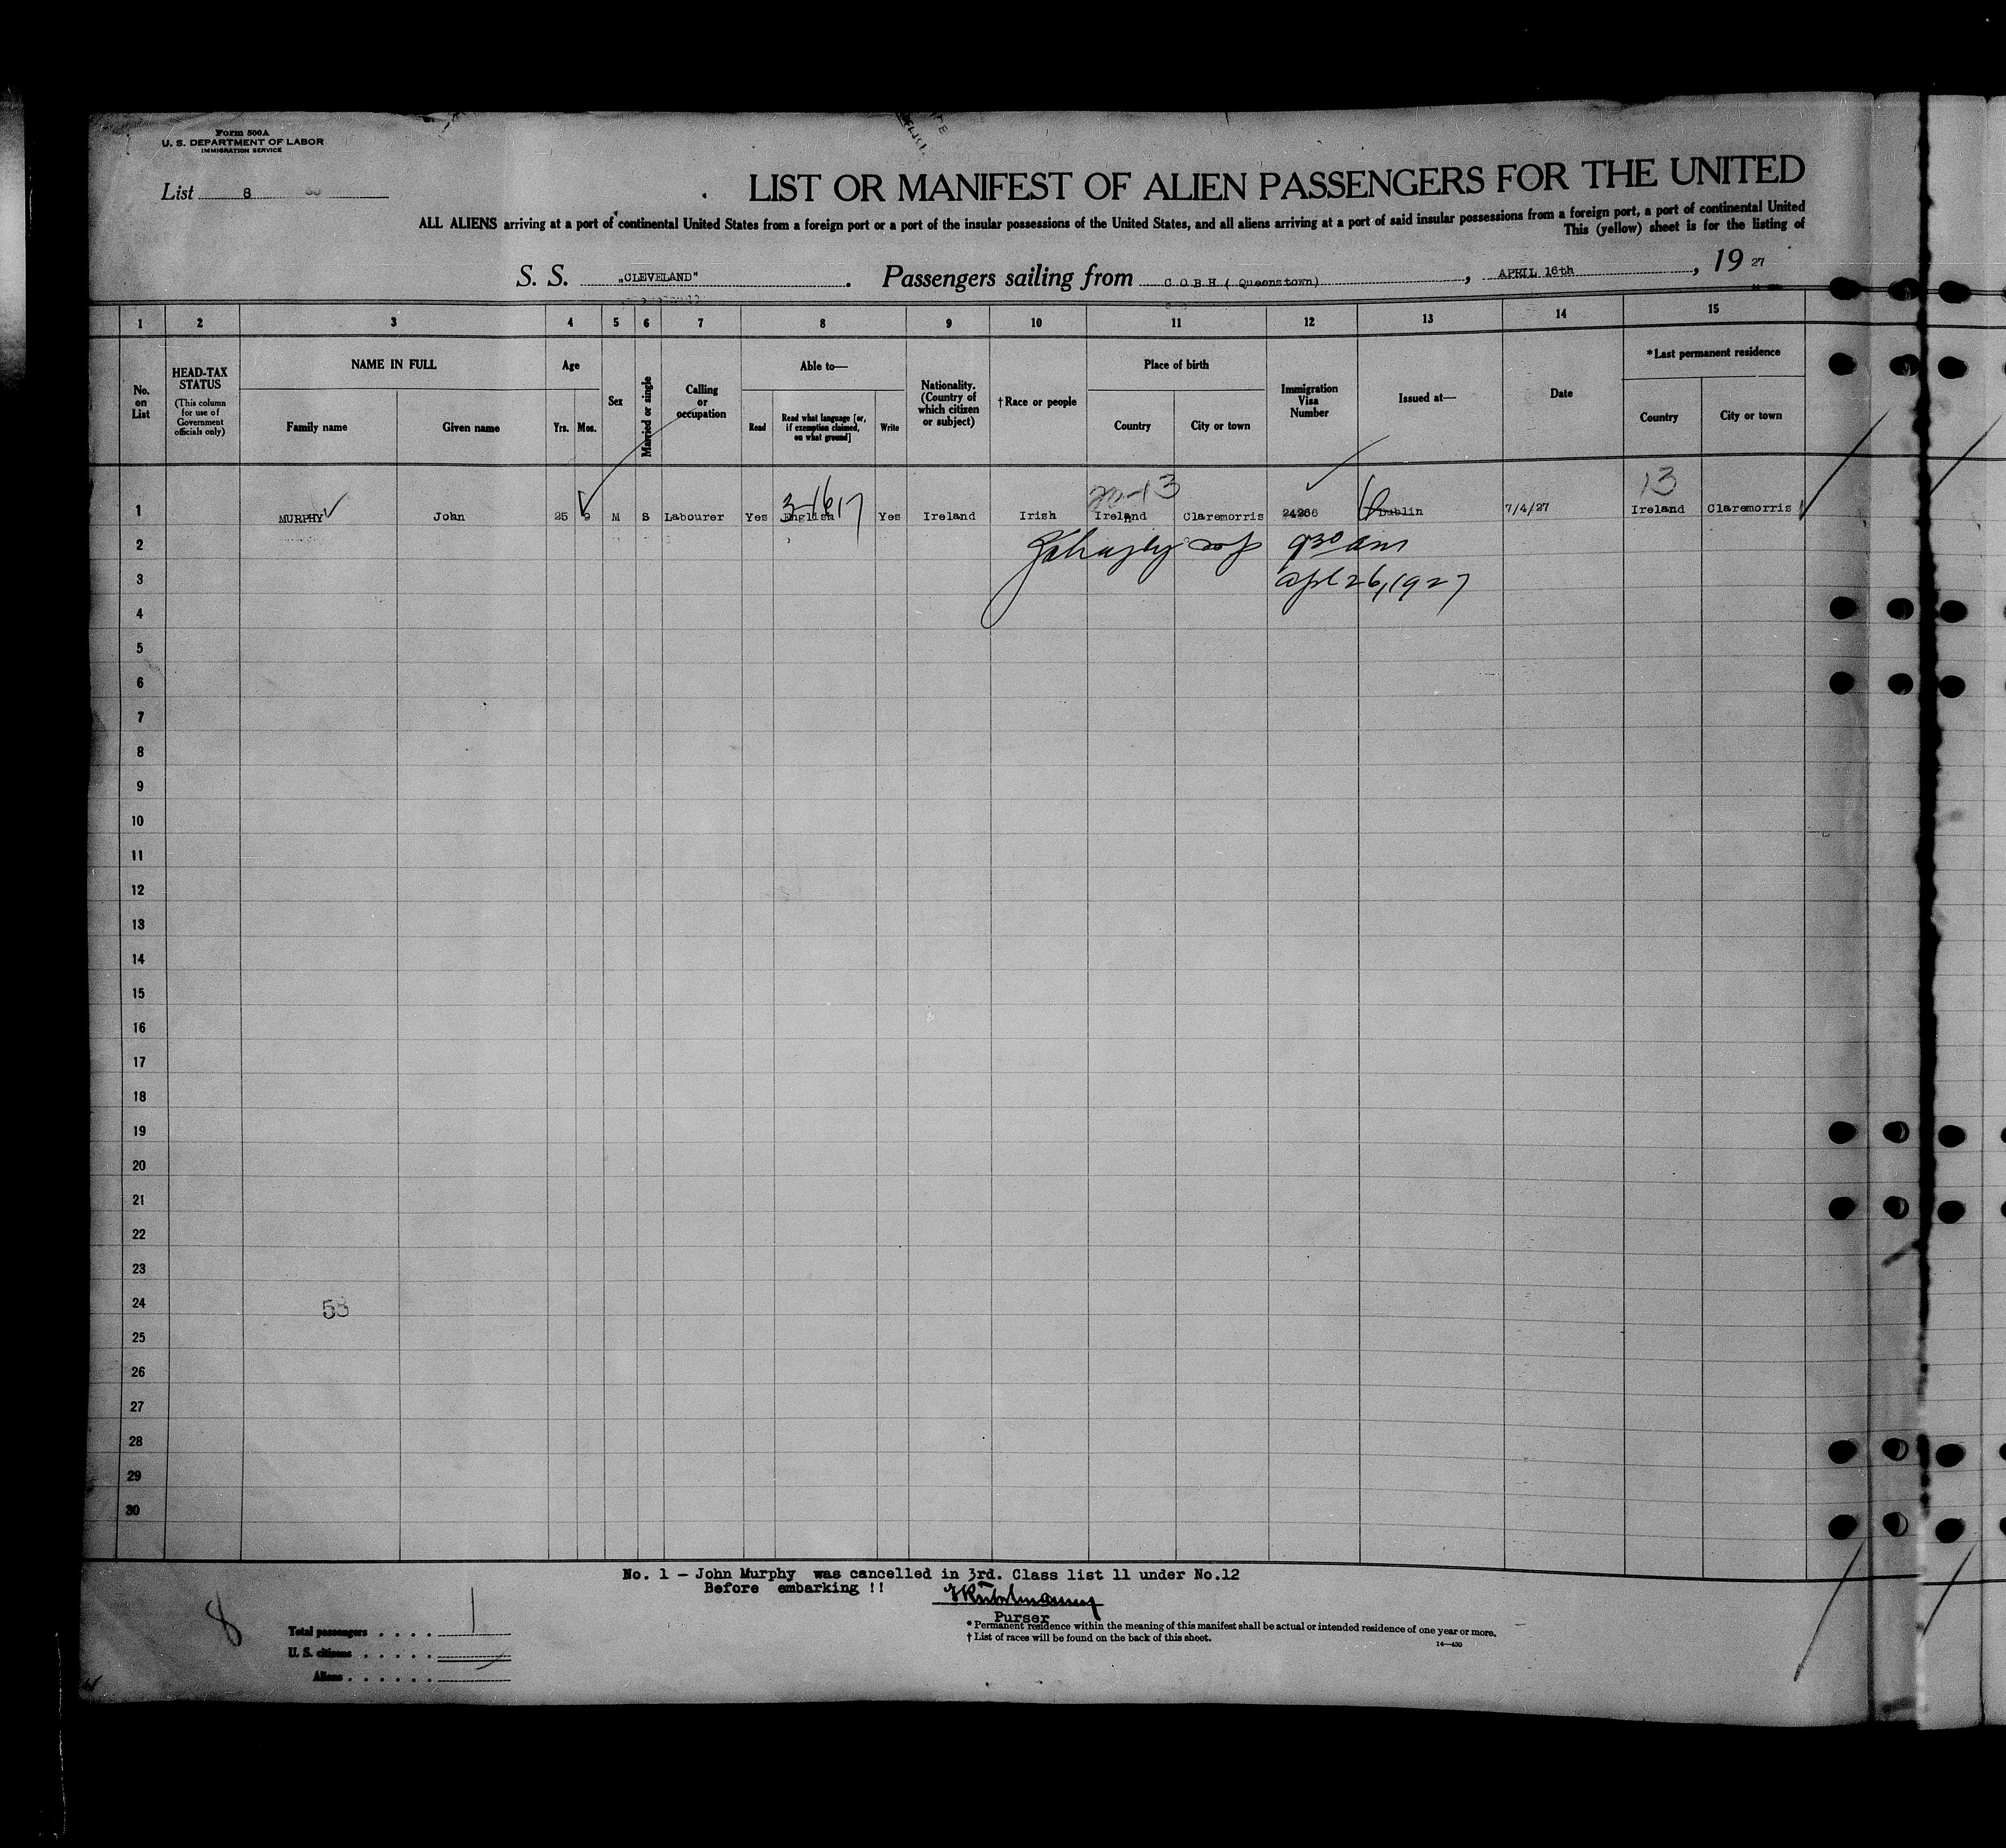 Form 500A
U. S. DEPARTMENT OF LABOR
IMMIGRATION SERVICE
List 8
LIST OR MANIFEST OF ALIEN PASSENGERS FOR THE UNITED
ALL ALIENS arriving at a port of continental United States from a foreign port or a port of the insular possessions of the United States, and all aliens arriving at a port of said insular possessions from a foreign port, a port of continental United
This (yellow) sheet is for the listing of
S. S. „CLEVELAND" . Passengers sailing from C O B H ( Queenstown) , APRIL 16th , 19 27
1 2 3 4 5 6 7 8 9 10 11 12 13 14 15
No. on List
HEAD-TAX STATUS
(This column for use of Government officials only)
NAME IN FULL
Family name Given name
Age
Yrs. Mos.
Sex
Married or single
Calling or occupation
Able to—
Read
Read what language [or, if exemption claimed, on what ground]
Write
Nationality. (Country of which citizen or subject)
† Race or people
Place of birth
Country City or town
Immigration Visa Number
Issued at—
Date
* Last permanent residence
Country City or town
3-1617 20-13 13
1 MURPHY John 25 9 M S Labourer Yes English Yes Ireland Irish Ireland Claremorris 24266 Dublin 7/4/27 Ireland Claremorris
2 9 30 am
3 Apl 26, 1927
4
5
6
7
8
9
10
11
12
13
14
15
16
17
18
19
20
21
22
23
24 53
25
26
27
28
29
30
No. 1 - John Murphy was cancelled in 3rd. Class list 11 under No.12
Before embarking !!
Purser
8
Total passengers . . . . 1
U. S. citizens . . . . .
Aliens . . . . . .
* Permanent residence within the meaning of this manifest shall be actual or intended residence of one year or more.
† List of races will be found on the back of this sheet.
14—430